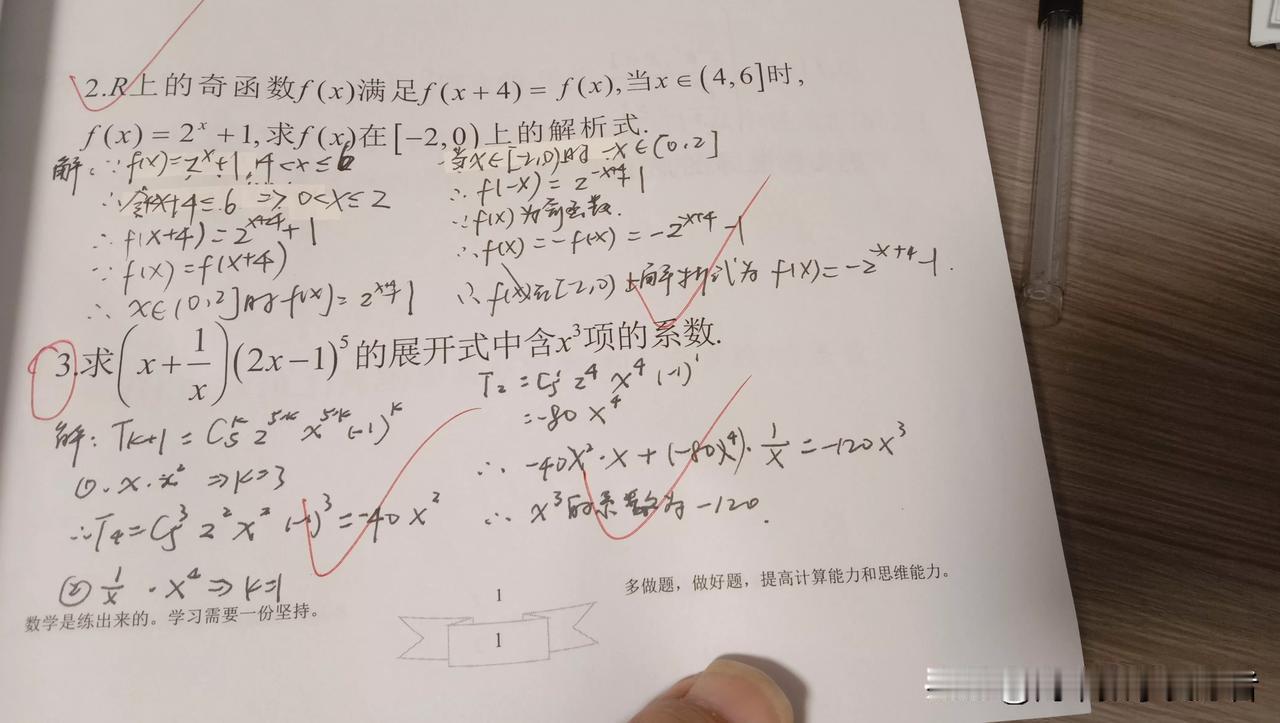 2.R上的奇函数f(x)满足f(x+4)=f(x),当x∈(4,6]时,
f(x)=2^x+1,求f(x)在[-2,0)上的解析式.
解:∵f(x)=2^x+1, 4<x≤6
∴令4<x+4≤6 ⇒0<x≤2
∴f(x+4)=2^{x+4}+1
∵f(x)=f(x+4)
∴x∈(0,2]时f(x)=2^{x+4}+1
当x∈[-2,0)时-x∈(0,2]
∴f(-x)=2^{-x+4}+1
∵f(x)为奇函数.
∴f(x)=-f(-x)=-2^{-x+4}-1
∴f(x)在[-2,0)上解析式为f(x)=-2^{-x+4}-1.
3.求(x+1/x)(2x-1)^5的展开式中含x^3项的系数.
解:T_{k+1}=C_5^k 2^{5-k} x^{5-k}(-1)^k
①.x·x^2⇒k=3
∴T_4=C_5^3 2^2 x^2 (-1)^3=-40x^2
②1/x·x^4⇒k=1
T_2=C_5^1 2^4 x^4 (-1)^1
=-80x^4
∴-40x^2·x+(-80x^4)·1/x=-120x^3
∴x^3的系数为-120.
数学是练出来的。学习需要一份坚持。
1
1
多做题，做好题，提高计算能力和思维能力。